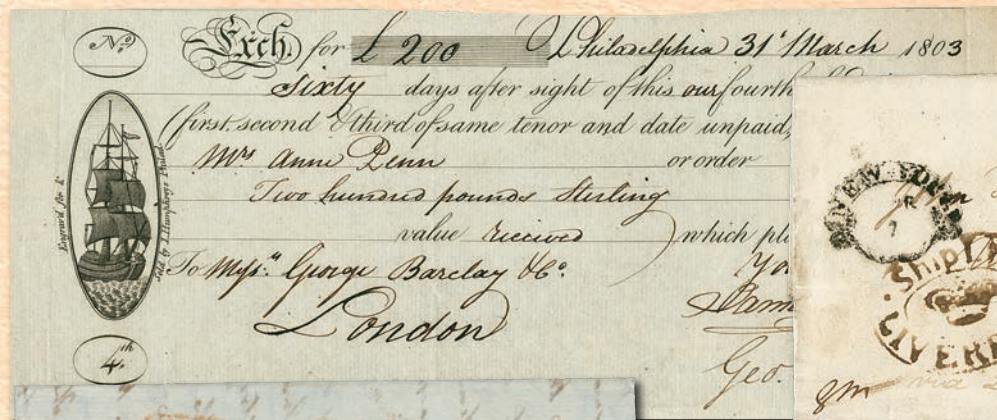 No.
Exch. for £ 200 Philadelphia 31st March 1803
Sixty days after sight of this our fourth
(first, second & third of same tenor and date unpaid,
Mrs Anne Penn or order
Two hundred pounds Sterling
value received) which
To Messrs. George Barclay & Co.
London
Geo.
4th
Engrav'd for &
Sold by J. Humphreys Philad.
NEW YORK
7
SHIP
LIVER